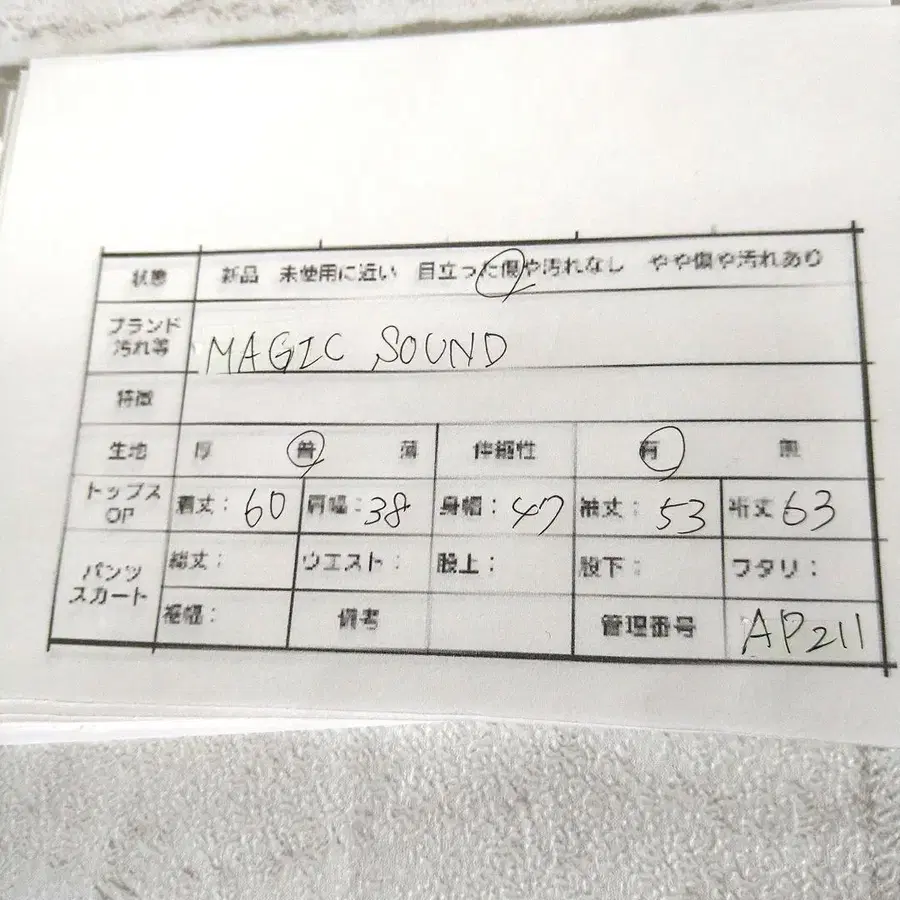 状態 新品 未使用に近い 目立った傷や汚れなし やや傷や汚れあり
ブランド
汚れ等 MAGIC SOUND
特徴
生地 厚 普 薄 伸縮性 有 無
トップス
OP 着丈: 60 肩幅: 38 身幅: 47 袖丈: 53 裄丈 63
パンツ
スカート 総丈: ウエスト: 股上: 股下: フタリ:
裾幅: 備考 管理番号 AP211